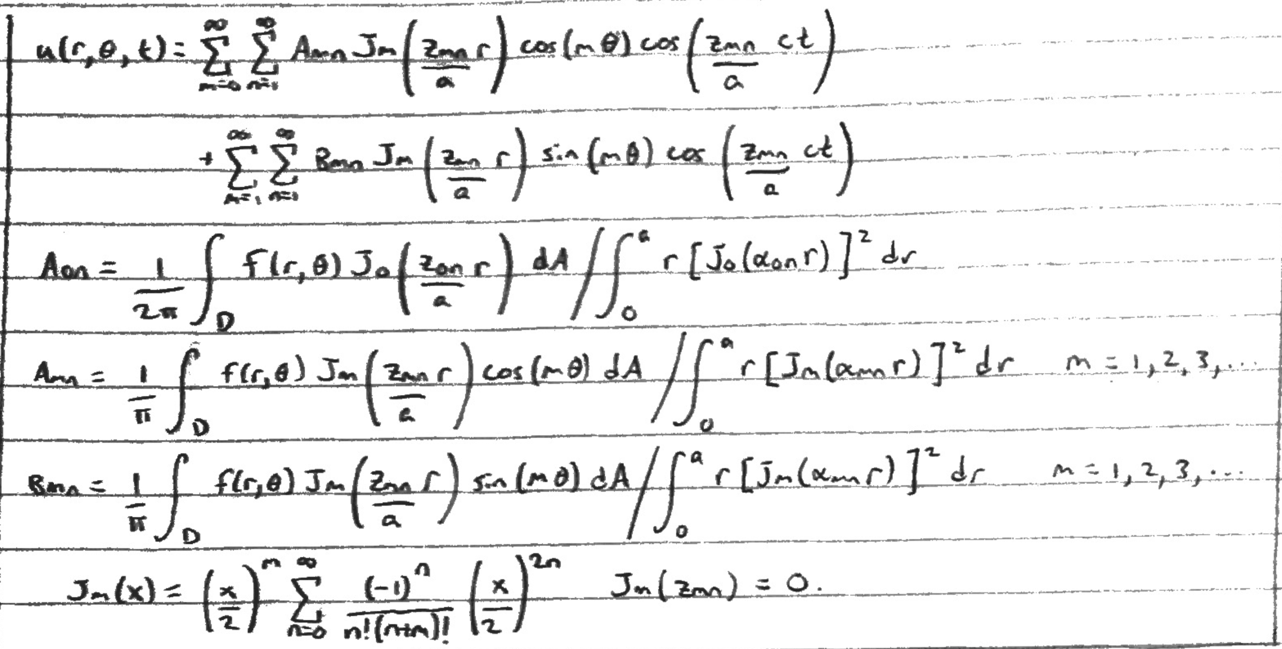 u(r,θ,t) = ∑_{m=0}^{∞} ∑_{n=1}^{∞} A_{mn} J_m (z_{mn}/a r) cos(mθ) cos (z_{mn}/a ct)
+ ∑_{m=1}^{∞} ∑_{n=1}^{∞} B_{mn} J_m (z_{mn}/a r) sin(mθ) cos (z_{mn}/a ct)
A_{0n} = 1/2π ∫_D f(r,θ) J_0 (z_{0n}/a r) dA / ∫_0^a r [J_0(α_{0n} r)]^2 dr
A_{mn} = 1/π ∫_D f(r,θ) J_m (z_{mn}/a r) cos(mθ) dA / ∫_0^a r [J_m(α_{mn} r)]^2 dr m = 1, 2, 3, ...
B_{mn} = 1/π ∫_D f(r,θ) J_m (z_{mn}/a r) sin(mθ) dA / ∫_0^a r [J_m(α_{mn} r)]^2 dr m = 1, 2, 3, ...
J_m(x) = (x/2)^m ∑_{n=0}^{∞} (-1)^n/n!(n+m)! (x/2)^{2n} J_m(z_{mn}) = 0.